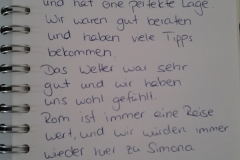 und hat eine perfekte Lage.
Wir waren gut beraten
und haben viele Tipps
bekommen.
Das Wetter war sehr
gut und wir haben
uns wohl gefühlt.
Rom ist immer eine Reise
wert, und wir würden immer
wieder hier zu Simona